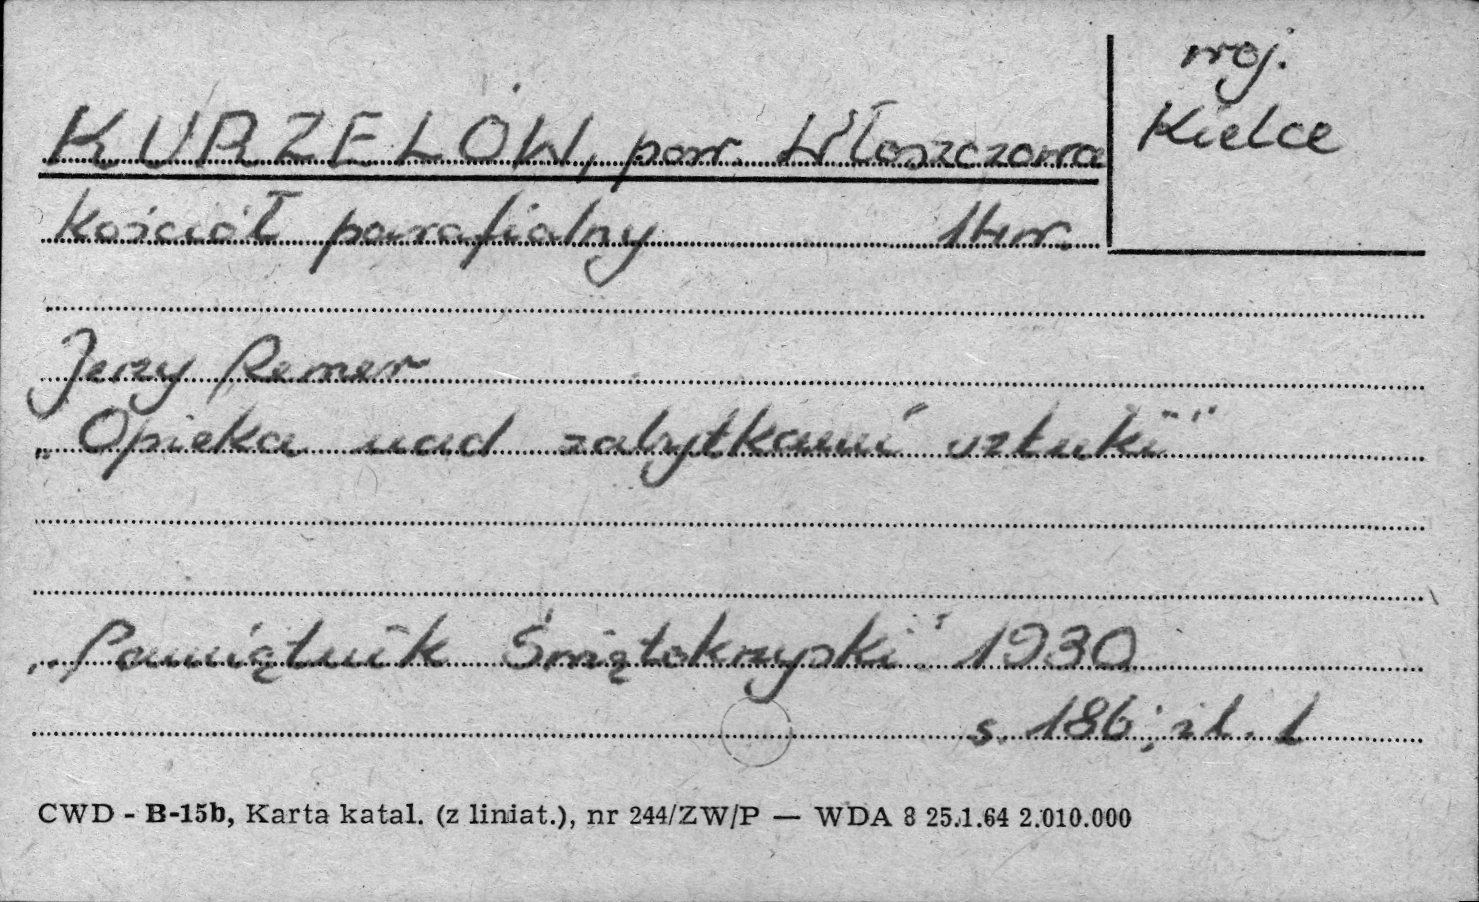 woj.
Kielce
KURZELÓW, pow. Włoszczowa
Kościół parafialny 14 w.
Jerzy Remer
„Opieka nad zabytkami sztuki"
„Pamiętnik Świętokrzyski" 1930
s. 186; il. 1
CWD - B-15b, Karta katal. (z liniat.), nr 244/ZW/P — WDA 8 25.1.64 2.010.000